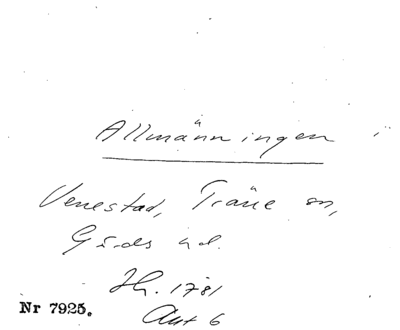 Allmänningen i
Venestad, Träne sn,
Gärds hd.
Jh. 1781
Nr 7925.
Akt 6